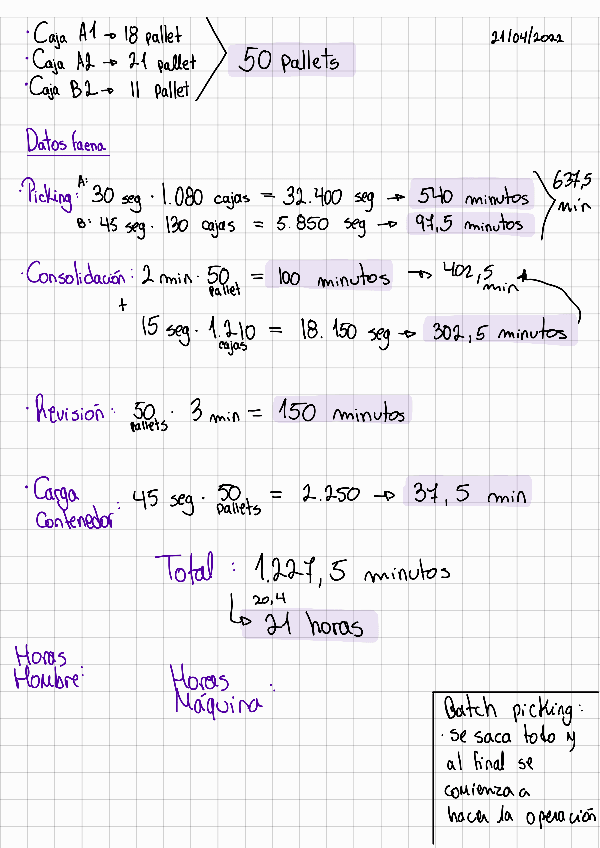 · Caja A1 → 18 pallet
· Caja A2 → 21 pallet
· Caja B2 → 11 pallet
50 pallets
21/04/2022
Datos faena
· Picking: A: 30 seg · 1.080 cajas = 32.400 seg → 540 minutos
B: 45 seg · 130 cajas = 5.850 seg → 97,5 minutos
637,5 min
· Consolidación: 2 min · 50 pallet = 100 minutos → 402,5 min
+
15 seg · 1.210 cajas = 18.150 seg → 302,5 minutos
· Revisión: 50 pallets · 3 min = 150 minutos
· Carga
Contenedor: 45 seg · 50 pallets = 2.250 → 37,5 min
Total: 1.227,5 minutos
20,4
↳ 21 horas
Horas
Hombre:
Horas
Máquina:
Batch picking:
· se saca todo y
al final se
comienza a
hacer la operación